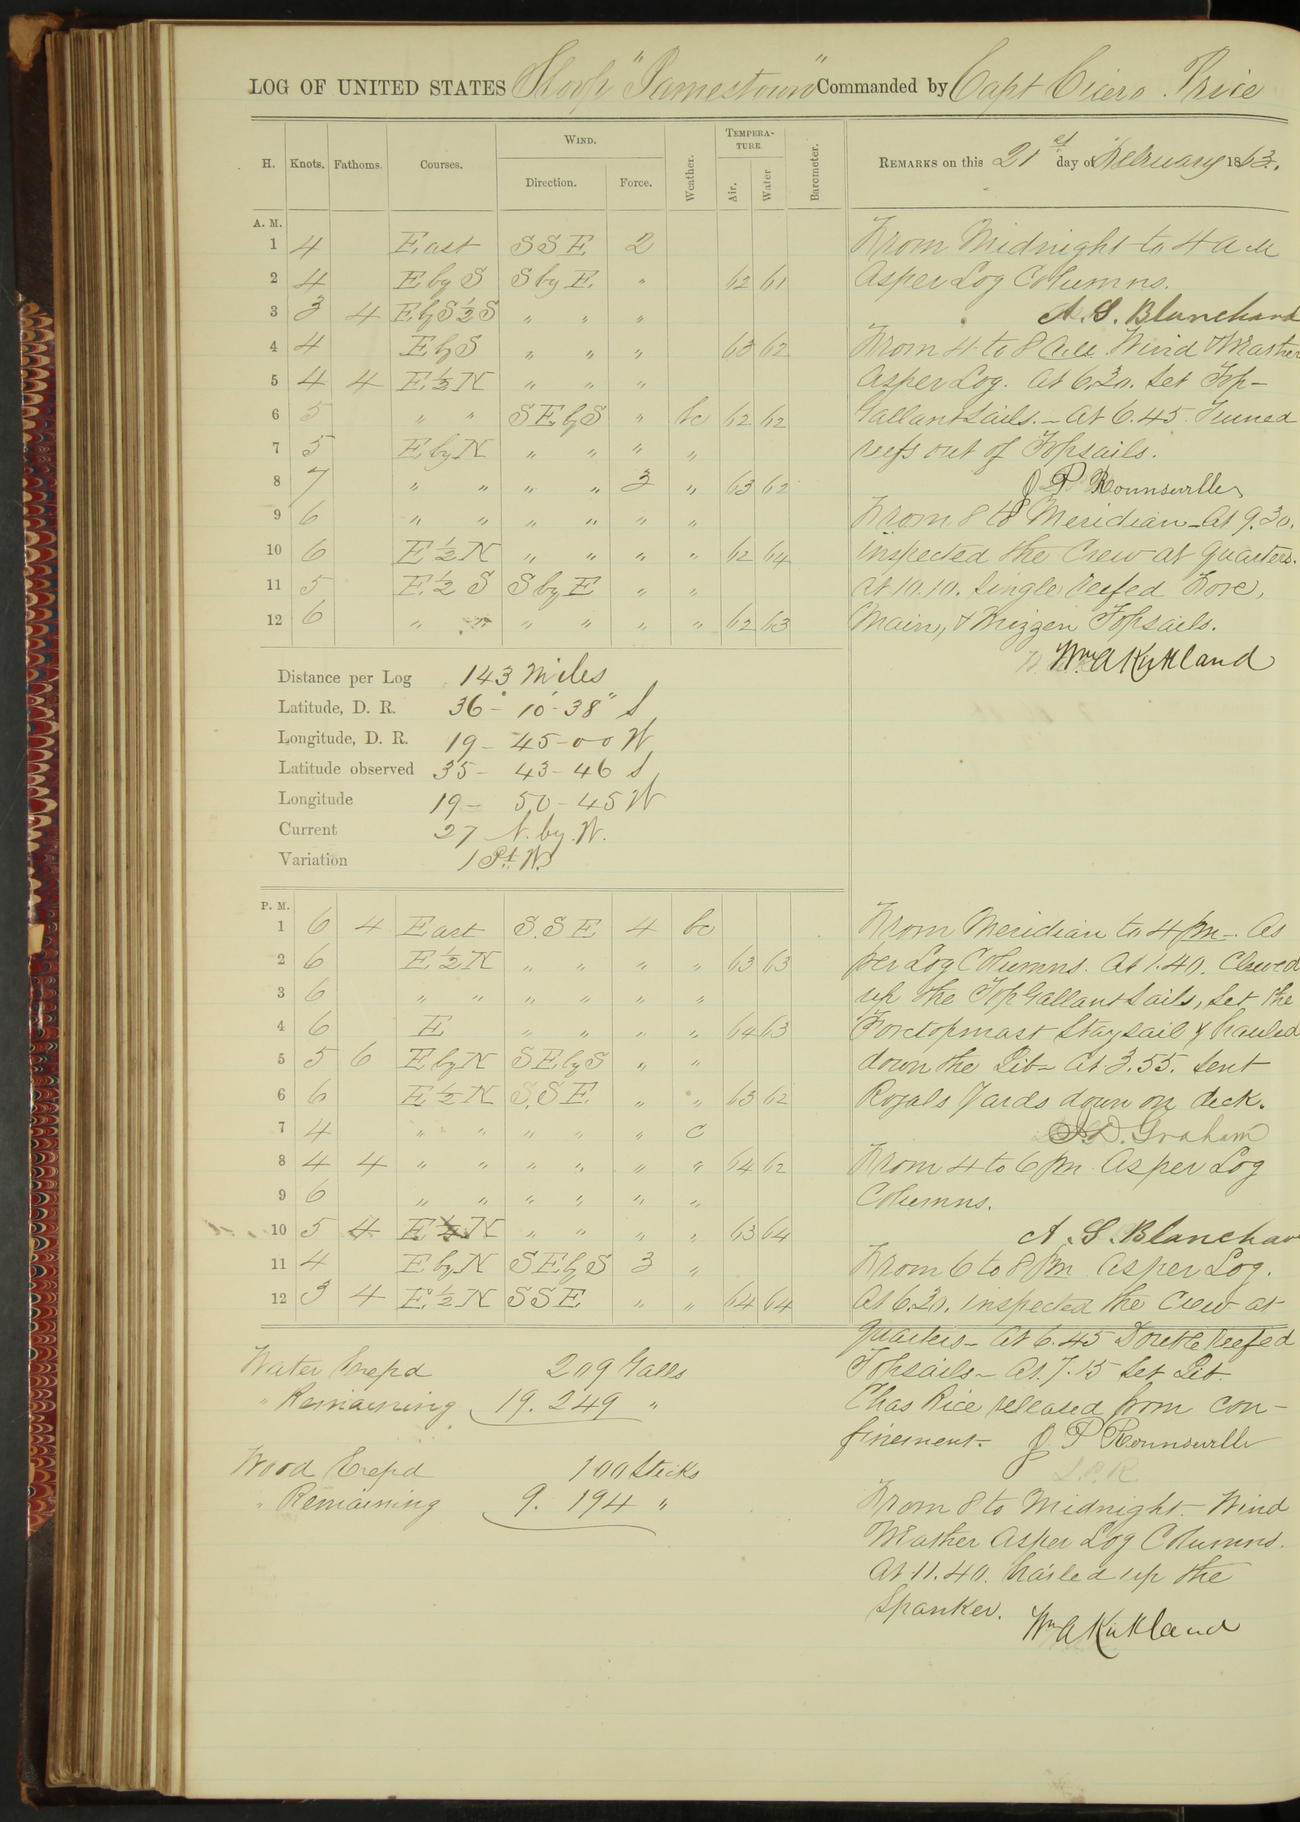 LOG OF UNITED STATES Sloop "Jamestown" Commanded by Capt Cicero Price
H. Knots. Fathoms. Courses. WIND. Direction. Force. Weather. TEMPERATURE. Air. Water Barometer. REMARKS on this 21st day of February 1863.
A. M.
1 4 East SSE 2
2 4 E by S S by E. " 62 61
3 3 4 E by S ½ S " " "
4 4 E by S " " " 63 62
5 4 4 E ½ N " " "
6 5 " " SE by S " bc 62 62
7 5 E by N " " " "
8 7 " " " " 3 " 63 62
9 6 " " " " " "
10 6 E ½ N " " " " 62 64
11 5 E ½ S S by E " "
12 6 " " " " " " 62 63
From Midnight to 4 A M
As per Log Columns.
A. S. Blanchard
From 4 to 8 A M. Wind & Weather
As per Log. At 6.30. Set Top-
Gallant Sails. - At 6.45 Turned
reefs out of Topsails.
J P Rounsevlle
From 8 to Meridian - At 9.30.
inspected the Crew at Quarters.
At 10.10. Single reefed Fore,
Main, & Mizzen Topsails.
Wm A Kirkland
Distance per Log 143 Miles
Latitude, D. R. 36° - 10' - 38" S
Longitude, D. R. 19 - 45 - 00 W
Latitude observed 35 - 43 - 46 S
Longitude 19 - 50 - 45 W
Current 27 N. by W.
Variation 1 Pt. W.
P. M.
1 6 4 East S.SE 4 bc
2 6 E ½ N " " " " 63 63
3 6 " " " " " "
4 6 E " " " " 64 63
5 5 6 E by N SE by S " "
6 6 E ½ N S.SE " " 63 62
7 4 " " " " " c
8 4 4 " " " " " " 64 62
9 6 " " " " " "
10 5 4 E ½ N " " " " 63 64
11 4 E by N SE by S 3 "
12 3 4 E ½ N SSE " " 64 64
From Meridian to 4 pm. As
per Log Columns. At 1.40. Clewed
up the Top Gallant Sails, Set the
Foretopmast Staysail & hauled
down the Jib - At 3.55. Sent
Royals Yards down on deck.
J. D. Graham
From 4 to 6 pm As per Log
Columns.
A. S. Blanchar
From 6 to 8 pm As per Log.
At 6.30. inspected the Crew at
Quarters - At 6.45 Double reefed
Topsails - At 7.15 Set Jib -
Chas Rice released from con-
finement - J P Rounsevlle
From 8 to Midnight - Wind
Weather As per Log Columns.
At 11.40. hauled up the
Spanker. Wm A Kirkland
Water Exepd 209 Galls
" Remaining 19.249 "
Wood Exepd 100 Sticks
" Remaining 9.194 "